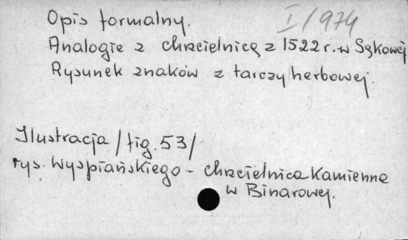 Opis formalny. I/1974
Analogie z chrzcielnicą z 1522 r. w Sękowej
Rysunek znaków z tarczy herbowej.
Ilustracja /fig. 53/
rys. Wyspiańskiego - chrzcielnica kamienna
w Binarowej.